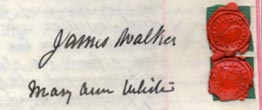 James Walker
Mary Ann White